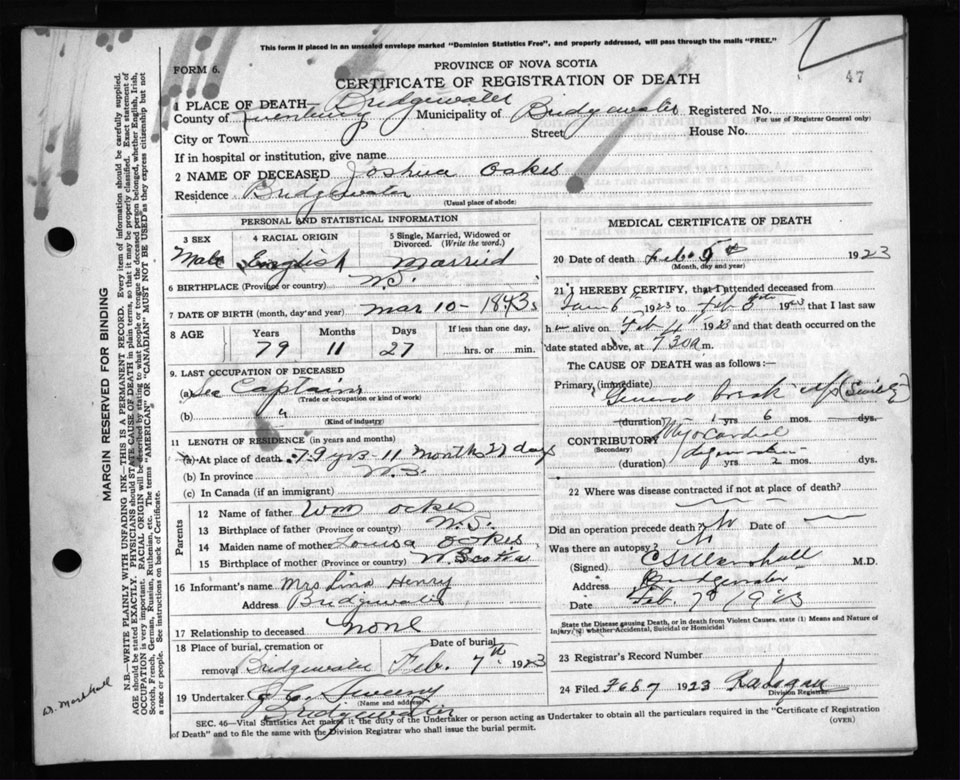 This form if placed in an unsealed envelope marked "Dominion Statistics Free", and properly addressed, will pass through the mails "FREE."
FORM 6.
PROVINCE OF NOVA SCOTIA
CERTIFICATE OF REGISTRATION OF DEATH
47
1 PLACE OF DEATH— Bridgewater
County of Lunenburg Municipality of Bridgewater Registered No.
(For use of Registrar General only)
City or Town Street House No.
If in hospital or institution, give name
2 NAME OF DECEASED Joshua Oakes
Residence Bridgewater
(Usual place of abode)
PERSONAL AND STATISTICAL INFORMATION
3 SEX 4 RACIAL ORIGIN 5 Single, Married, Widowed or Divorced. (Write the word.)
Male English Married
6 BIRTHPLACE (Province or country) N.S.
7 DATE OF BIRTH (month, day and year) Mar 10 - 1843
8 AGE Years Months Days If less than one day,
79 11 27 hrs. or min.
9. LAST OCCUPATION OF DECEASED
(a) Sea Captain
(Trade or occupation or kind of work)
(b) "
(Kind of industry)
11 LENGTH OF RESIDENCE (in years and months)
(a) At place of death 79 yrs - 11 months 27 days
(b) In province N.S.
(c) In Canada (if an immigrant)
Parents
12 Name of father Wm Oakes
13 Birthplace of father (Province or country) N.S.
14 Maiden name of mother Louisa Oakes
15 Birthplace of mother (Province or country) N. Scotia
16 Informant's name Mrs Lina Henry
Address Bridgewater
17 Relationship to deceased none
18 Place of burial, cremation or Date of burial
removal Bridgewater Feb. 7th 1923
19 Undertaker Sweeny
(Name and address)
Bridgewater
MEDICAL CERTIFICATE OF DEATH
20 Date of death Feb. 5th 1923
(Month, day and year)
21 I HEREBY CERTIFY, that I attended deceased from
Jan 6th 1923 to Feb 5th 1923 that I last saw
h alive on Feb 4th 1923 and that death occurred on the
date stated above, at 7 30 a m.
The CAUSE OF DEATH was as follows:—
Primary (immediate)
General break up (Senility)
(duration) 1 yrs 6 mos. dys.
CONTRIBUTORY Myocardial
(Secondary) degeneration
(duration) yrs 2 mos. dys.
22 Where was disease contracted if not at place of death?
Did an operation precede death? No Date of
Was there an autopsy? No
(Signed) Marshall M.D.
Address Bridgewater
Date Feb. 7th 1923
State the Disease causing Death, or in death from Violent Causes, state (1) Means and Nature of
Injury, (2) whether Accidental, Suicidal or Homicidal
23 Registrar's Record Number
24 Filed Feb 7 1923
Division Registrar
SEC. 46—Vital Statistics Act makes it the duty of the Undertaker or person acting as Undertaker to obtain all the particulars required in the "Certificate of Registration
of Death" and to file the same with the Division Registrar who shall issue the burial permit.
(OVER)
MARGIN RESERVED FOR BINDING
N.B.—WRITE PLAINLY WITH UNFADING INK—THIS IS A PERMANENT RECORD. Every item of information should be carefully supplied.
AGE should be stated EXACTLY. PHYSICIANS should STATE CAUSE OF DEATH in plain terms, so that it may be properly classified. Exact statement of
OCCUPATION is very important. RACIAL ORIGIN will be described by stating to what people or tongue the deceased person belonged, whether English, Irish,
Scotch, French, German, Russian, Ruthenian, etc. The terms "AMERICAN" OR "CANADIAN" MUST NOT BE USED as they express citizenship but not
a race or people. See instructions on back of Certificate.
Marshall